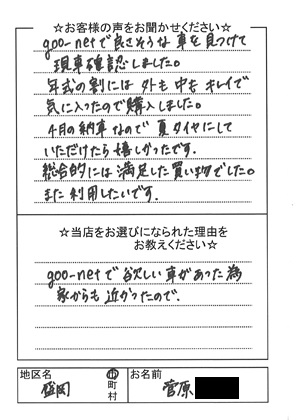 ☆お客様の声をお聞かせください☆
goo-netで良さそうな車を見つけて
現車確認しました。
年式の割には外も中もキレイで
気に入ったので購入しました。
4月の納車なので夏タイヤにして
いただけたら嬉しかったです。
総合的には満足した買い物でした。
また利用したいです。
☆当店をお選びになられた理由を
お教えください☆
goo-netで欲しい車があった為
家からも近かったので。
地区名 盛岡 市町村
お名前 菅原